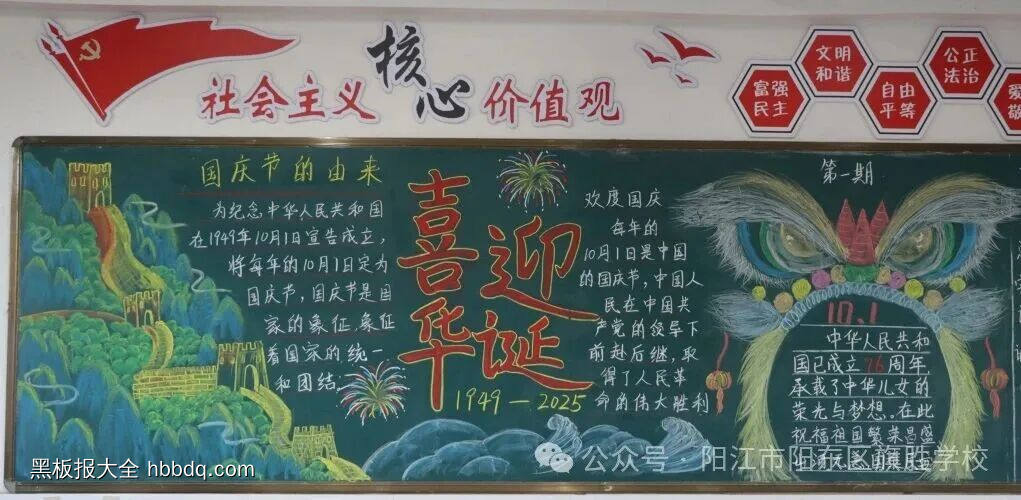 社会主义核心价值观
富强
民主
文明
和谐
自由
平等
公正
法治
国庆节的由来
为纪念中华人民共和国
在1949年10月1日宣告成立,
将每年的10月1日定为
国庆节,国庆节是国
家的象征,象征
着国家的统一
和团结.
喜迎
华诞
1949—2025
欢度国庆
每年的
10月1日是中国
的国庆节,中国人
民在中国共
产党的领导下
前赴后继,取
得了人民革
命的伟大胜利
第一期
10.1
中华人民共和
国已成立76周年,
承载了中华儿女的
荣光与梦想.在此
祝福祖国繁荣昌盛
黑板报大全 hbbdq.com
公众号·阳江市阳东区旗胜学校